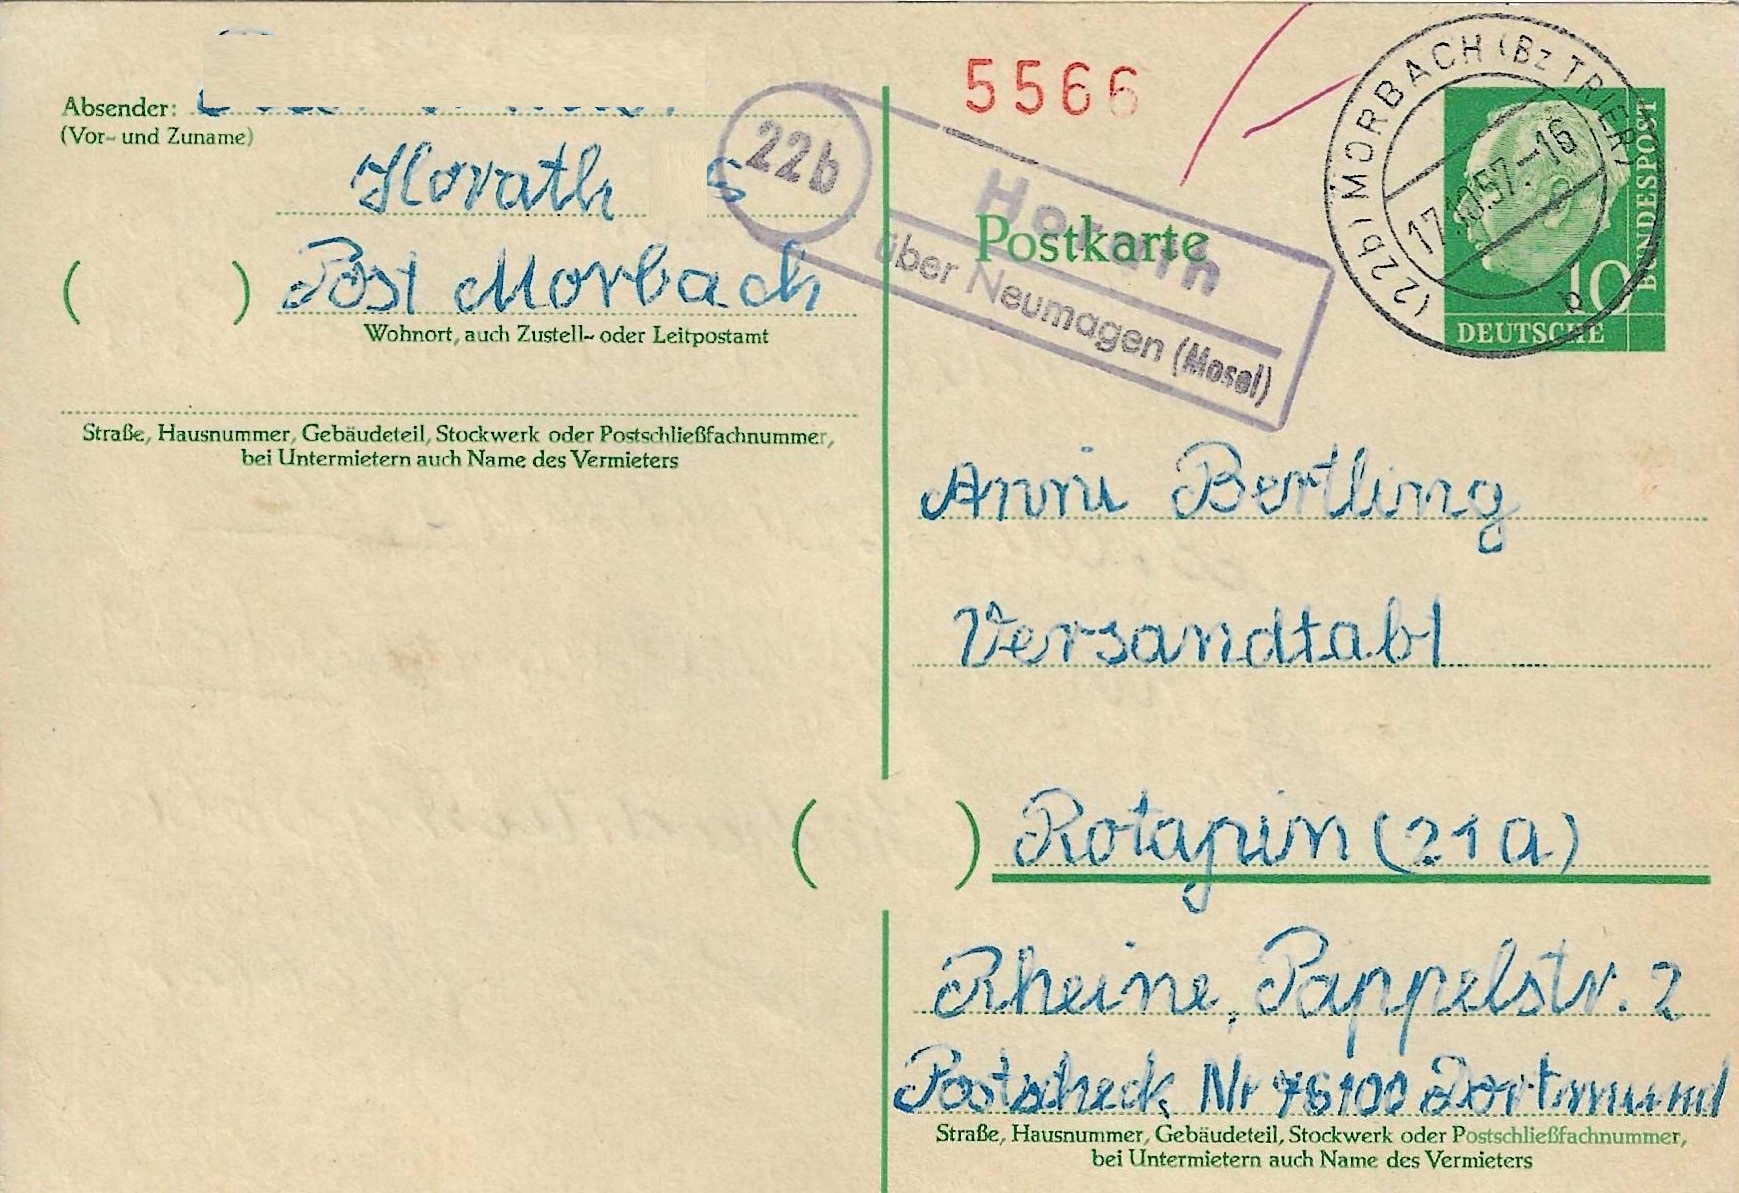 Absender:
(Vor- und Zuname)
Horath
Post Morbach
Wohnort, auch Zustell- oder Leitpostamt
Straße, Hausnummer, Gebäudeteil, Stockwerk oder Postschließfachnummer,
bei Untermietern auch Name des Vermieters
22b
Horath
über Neumagen (Mosel)
5566
Postkarte
(22b) MORBACH (Bz TRIER)
17.10.57.-16
b
10
DEUTSCHE
BUNDESPOST
Anni Bertling
Versandtabl
Rotapin (21a)
Rheine, Pappelstr. 2
Postscheck Nr 76100 Dortmund
Straße, Hausnummer, Gebäudeteil, Stockwerk oder Postschließfachnummer,
bei Untermietern auch Name des Vermieters